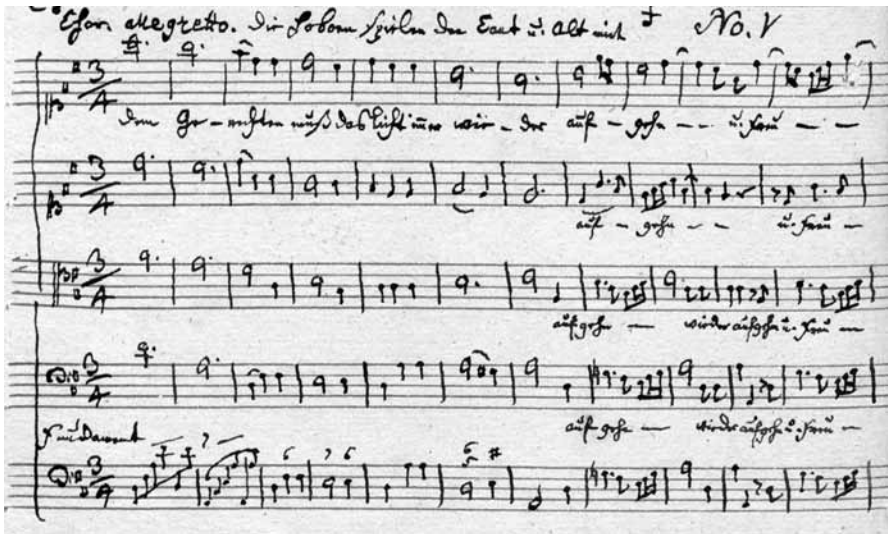 Chor. allegretto. Die Hoboen spielen den Cant u. Alt mit No. V
3/4
dem Ge - rechten muß das licht immer wie - der auf - gehn - - u. freu - -
3/4
auf - gehn - - u. freu -
3/4
aufgehn - wieder aufgehn u. freu -
3/4
aufgehn - wieder aufgehn u. freu -
Fundament - 7 -
3/4 6 7 6 6 #